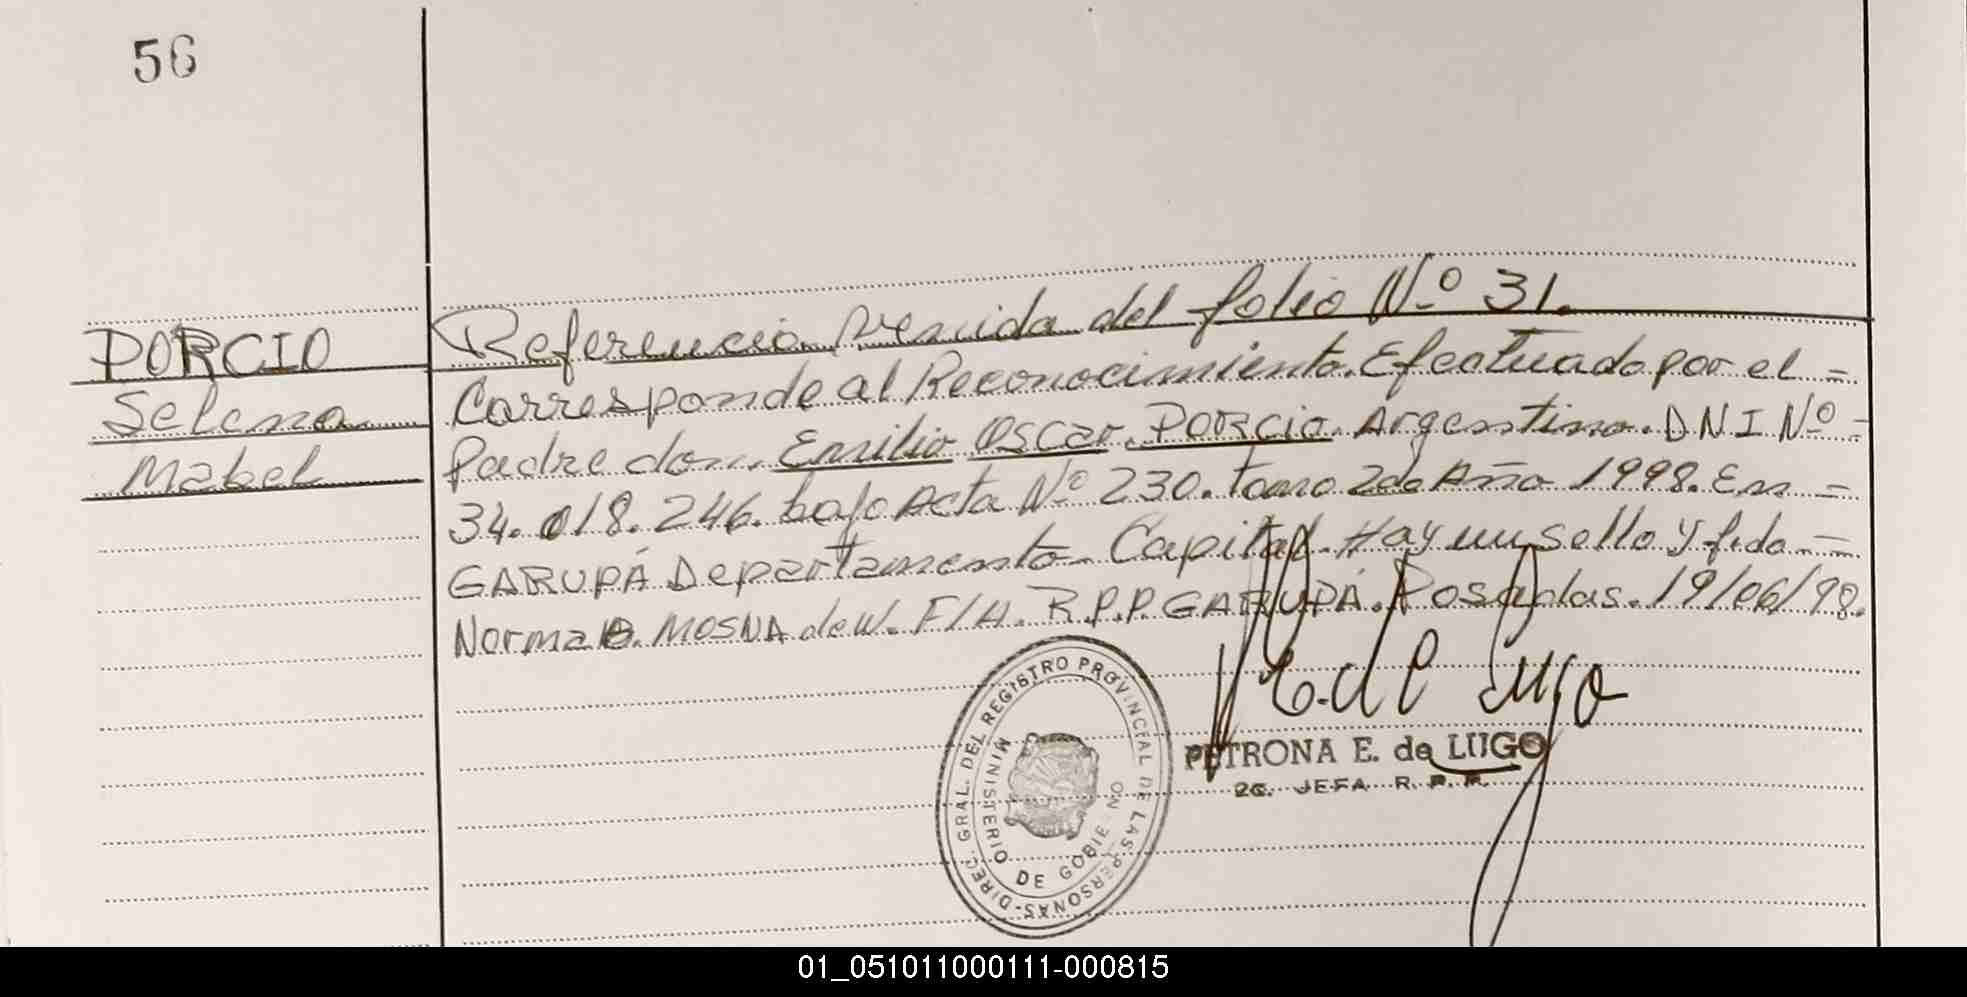 56
PORCIO
Selena
Mabel
Referencia venida del folio Nº 31.
Corresponde al Reconocimiento. Efectuado por el =
Padre don.. Emilio Oscar. PORCIO. Argentino. DNI Nº =
34.018.246. bajo Acta Nº 230. tomo 2do Año 1998. En =
GARUPÁ Departamento Capital. Hay un sello y fdo. =
Norma B. MOSNA de W. F/A. R.P.P. GARUPÁ. Posadas. 19/06/98.
E. de Lugo
PETRONA E. de LUGO
2a. JEFA R. P. P.
DIREC. GRAL. DEL REGISTRO PROVINCIAL DE LAS PERSONAS
MINISTERIO DE GOBIERNO
01_051011000111-000815